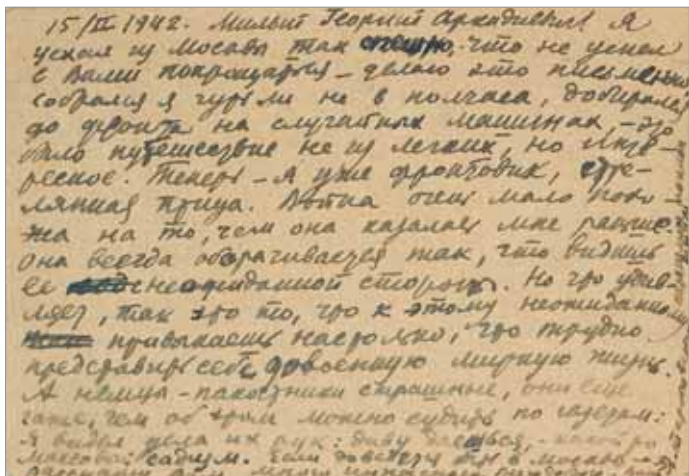 15/II 1942. Милый Георгий Аркадиевич! Я
уехал из Москвы так спешно, что не успел
с Вами попрощаться – делаю это письменно
собрался я чуть ли не в полчаса, добирался
до фронта на случайных машинах, – это
было путешествие не из легких, но инте-
ресное. Теперь – я уже фронтовик, стре-
лянная птица. Война очень мало похо-
жа на то, чем она казалась мне раньше.
Она всегда оборачивается так, что видишь
ее с неожиданной стороны. Но что удив-
ляет, так это то, что к этому неожиданному
привыкаешь настолько, что трудно
представить себе довоенную мирную жизнь.
А немцы – пакостники страшные, они еще
гаже, чем об этом можно судить по газетам:
Я видел дела их рук: диву даешься, – какой-то
массовый садизм. Если доведется быть в Москве –